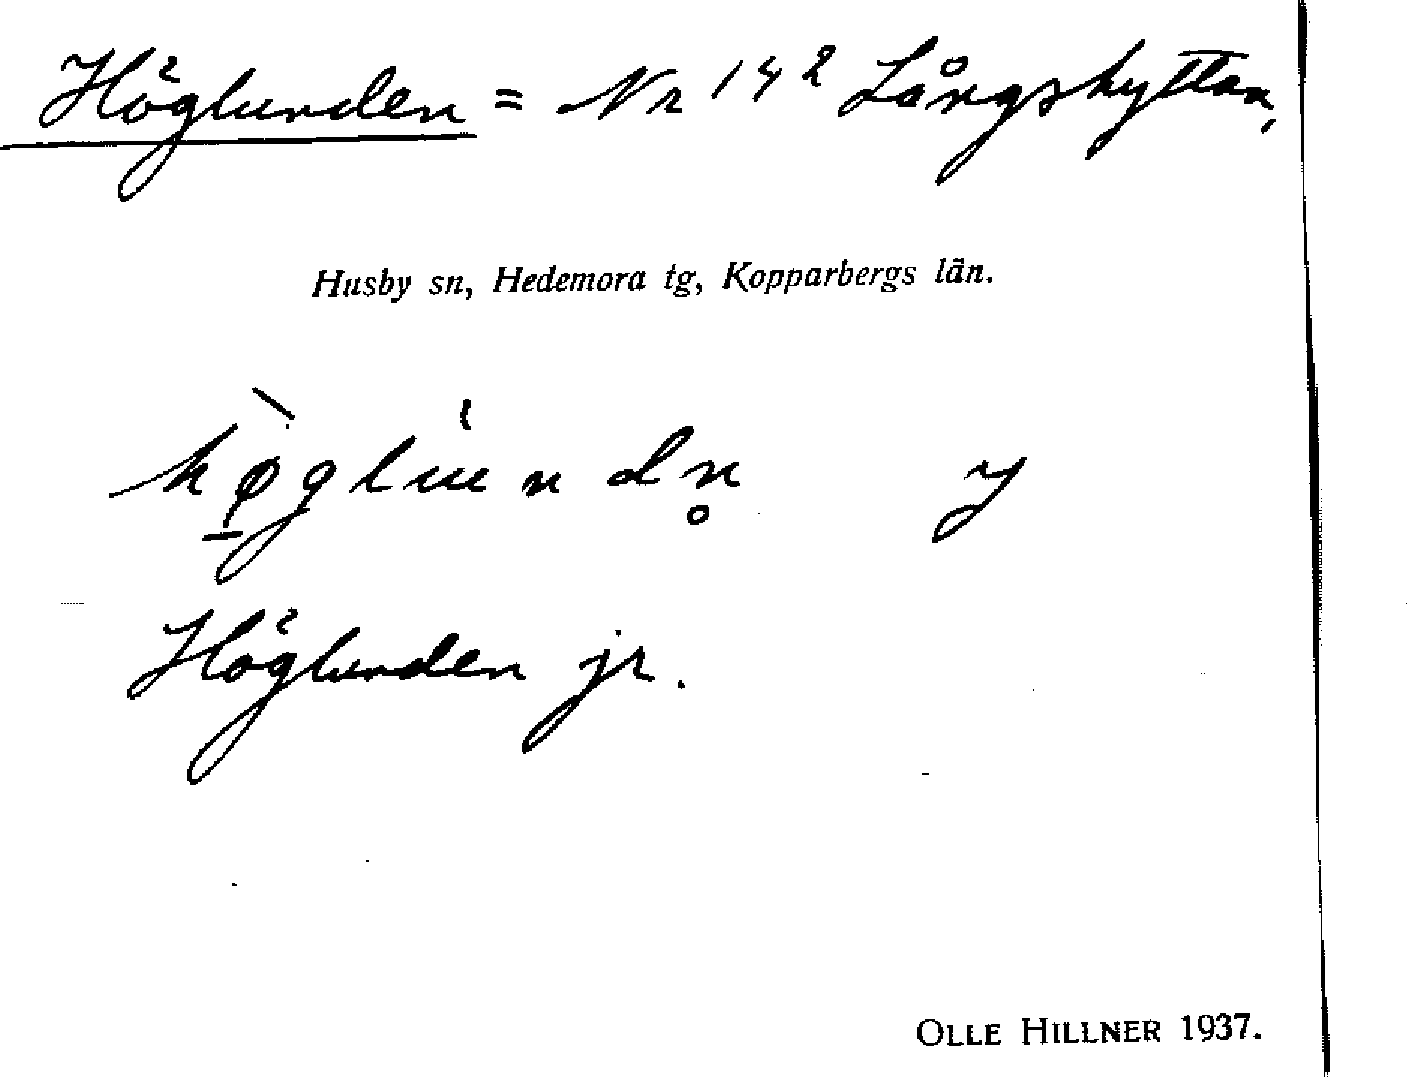 Höglunden = Nr 14² Långshyttan,
Husby sn, Hedemora tg, Kopparbergs län.
hø̀glùndn̥ y
Höglunden jr.
OLLE HILLNER 1937.